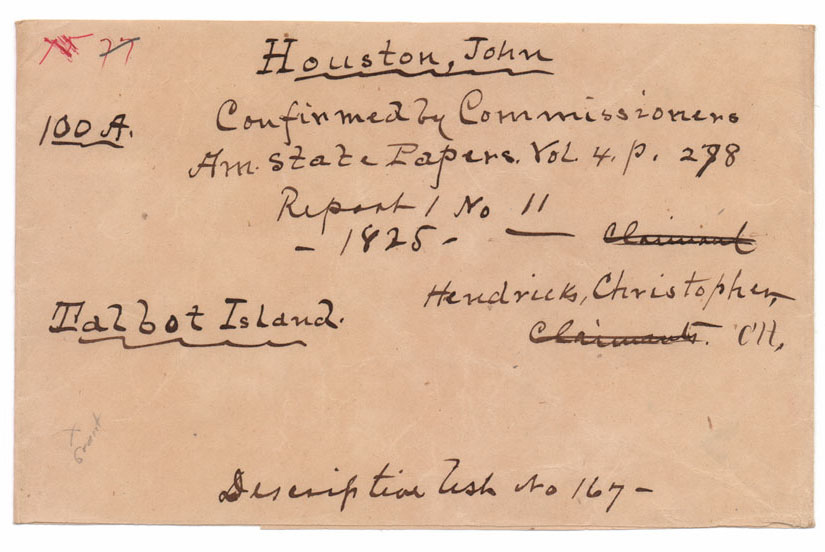 77
Houston, John
100 A.
Confirmed by Commissioners
Am. State Papers. Vol. 4. p. 278
Report 1 No 11
- 1825 -
Claimant
Hendricks, Christopher,
Talbot Island.
Claimants.
Grant
Descriptive List No 167 -